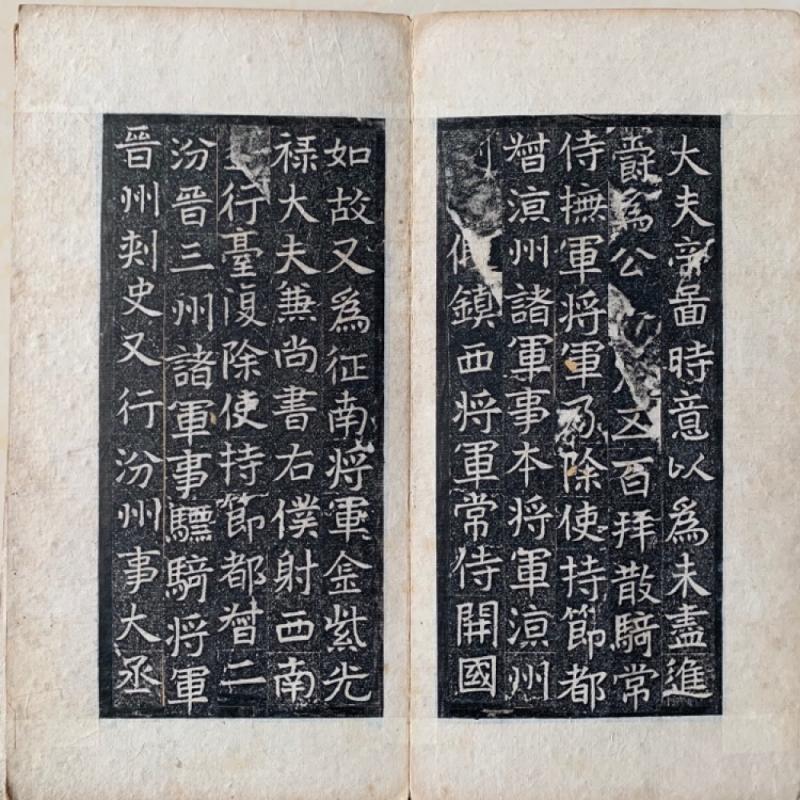 大夫帝啚時意以爲未盡進
爵爲公五百拜散騎常
侍撫軍將軍乃除使持節都
督涼州諸軍事本將軍涼州
假鎮西將軍常侍開國
如故又爲征南將軍金紫光
祿大夫兼尚書右僕射西南
行臺復除使持節都督二
汾晉三州諸軍事驃騎將軍
晉州刺史又行汾州事大丞